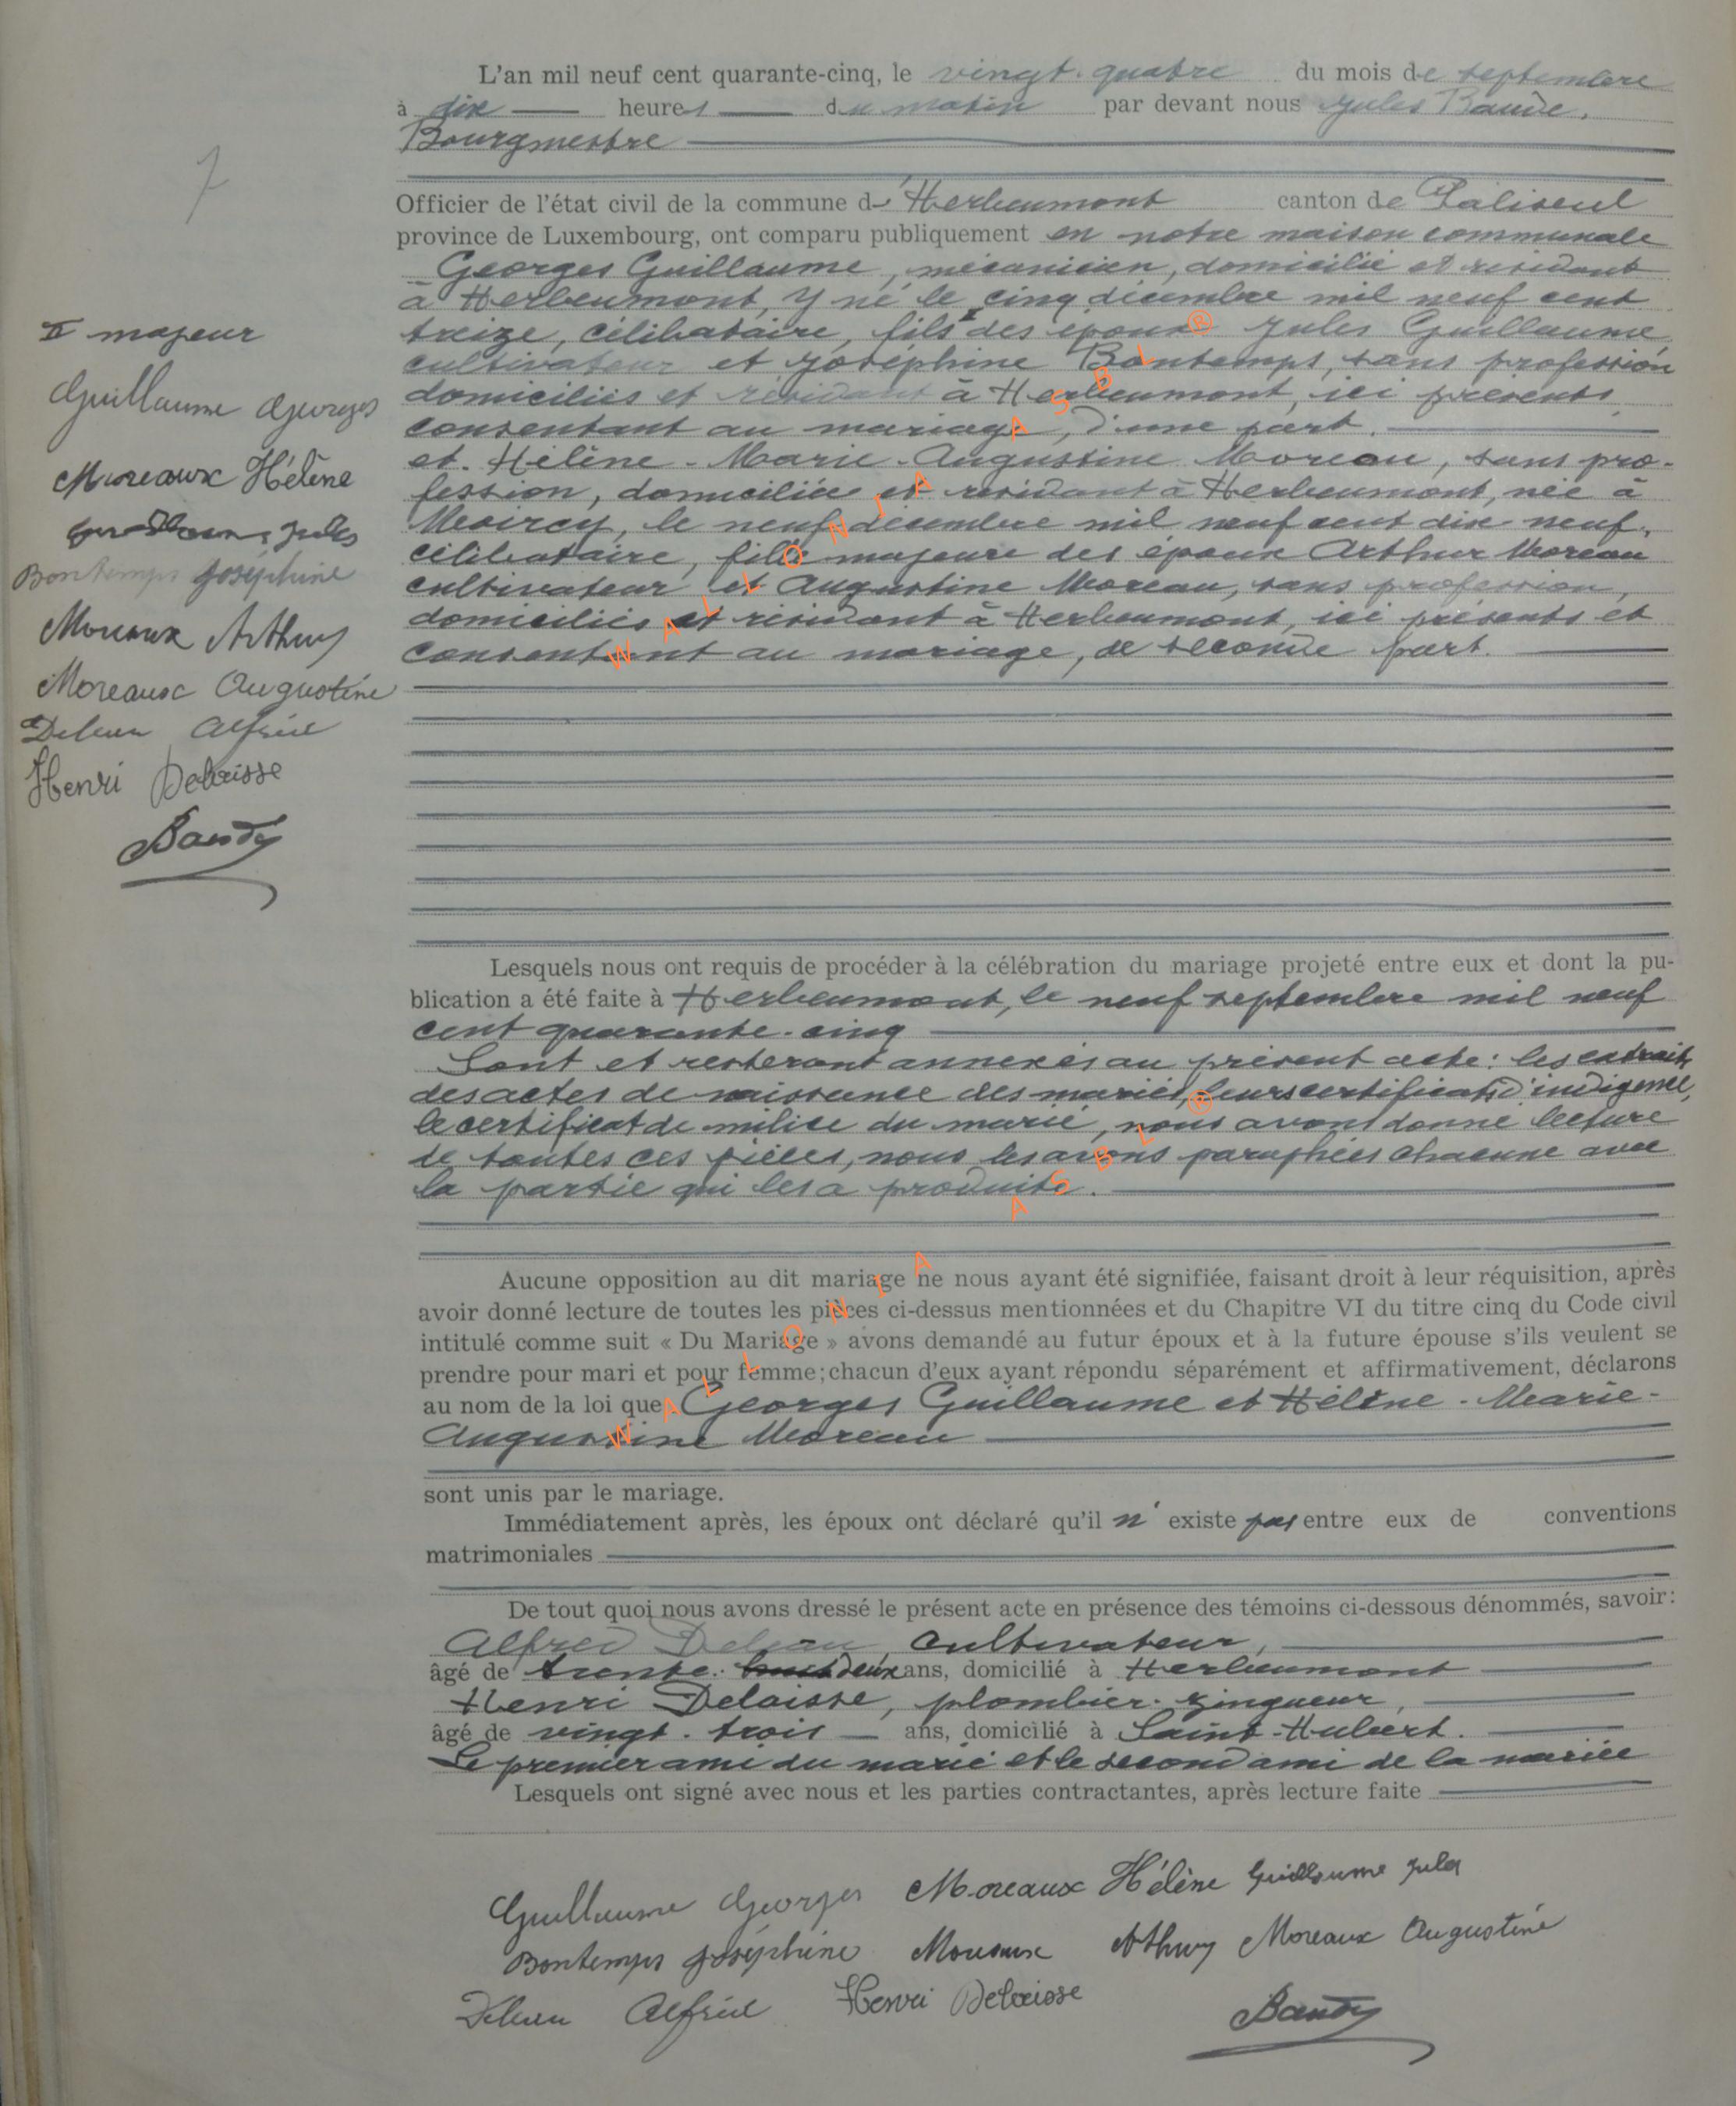 L'an mil neuf cent quarante-cinq, le vingt-quatre du mois de septembre
à dix heures du matin par devant nous Jules Baude,
Bourgmestre
7
Officier de l'état civil de la commune d'Herbeumont canton de Paliseul
province de Luxembourg, ont comparu publiquement en notre maison communale
Georges Guillaume, mécanicien, domicilié et résidant
à Herbeumont, y né le cinq décembre mil neuf cent
treize, célibataire, fils II des époux Jules Guillaume,
cultivateur et Joséphine Bontemps, sans profession
domiciliés et résidant à Herbeumont, ici présents,
consentant au mariage, d'une part.
et Hélène-Marie-Augustine Moreau, sans pro-
fession, domiciliée et résidant à Herbeumont, née à
le neuf décembre mil neuf cent dix-neuf,
célibataire, fille majeure des époux Arthur Moreau
cultivateur et Augustine Moreau, sans profession,
domiciliés et résidant à Herbeumont, ici présents et
consentant au mariage, de seconde part.
II majeur
Guillaume Georges
Moreaux Hélène
Guillaume Jules
Bontemps Joséphine
Moreaux Arthur
Moreaux Augustine
Alfred
Henri Delaisse
Lesquels nous ont requis de procéder à la célébration du mariage projeté entre eux et dont la pu-
blication a été faite à Herbeumont, le neuf septembre mil neuf
cent quarante-cinq
Sont et resteront annexés au présent acte: les extraits
des actes de naissance des mariés, leurs certificats d'indigence,
le certificat de milice du marié, nous avons donné lecture
de toutes ces pièces, nous les avons paraphées chacune avec
la partie qui les a produite.
Aucune opposition au dit mariage ne nous ayant été signifiée, faisant droit à leur réquisition, après
avoir donné lecture de toutes les pièces ci-dessus mentionnées et du Chapitre VI du titre cinq du Code civil
intitulé comme suit « Du Mariage » avons demandé au futur époux et à la future épouse s'ils veulent se
prendre pour mari et pour femme; chacun d'eux ayant répondu séparément et affirmativement, déclarons
au nom de la loi que Georges Guillaume et Hélène-Marie-
Augustine Moreau
sont unis par le mariage.
Immédiatement après, les époux ont déclaré qu'il n'existe pas entre eux de conventions
matrimoniales
De tout quoi nous avons dressé le présent acte en présence des témoins ci-dessous dénommés, savoir:
Alfred cultivateur,
âgé de trente-deux ans, domicilié à Herbeumont
Henri Delaisse, plombier-zingueur,
âgé de vingt-trois ans, domicilié à Saint-Hubert.
Le premier ami du marié et le second ami de la mariée
Lesquels ont signé avec nous et les parties contractantes, après lecture faite
Guillaume Georges Moreaux Hélène Guillaume Jules
Bontemps Joséphine Moreaux Arthur Moreaux Augustine
Alfred Henri Delaisse
WALLONIA ASBL ®
WALLONIA ASBL ®